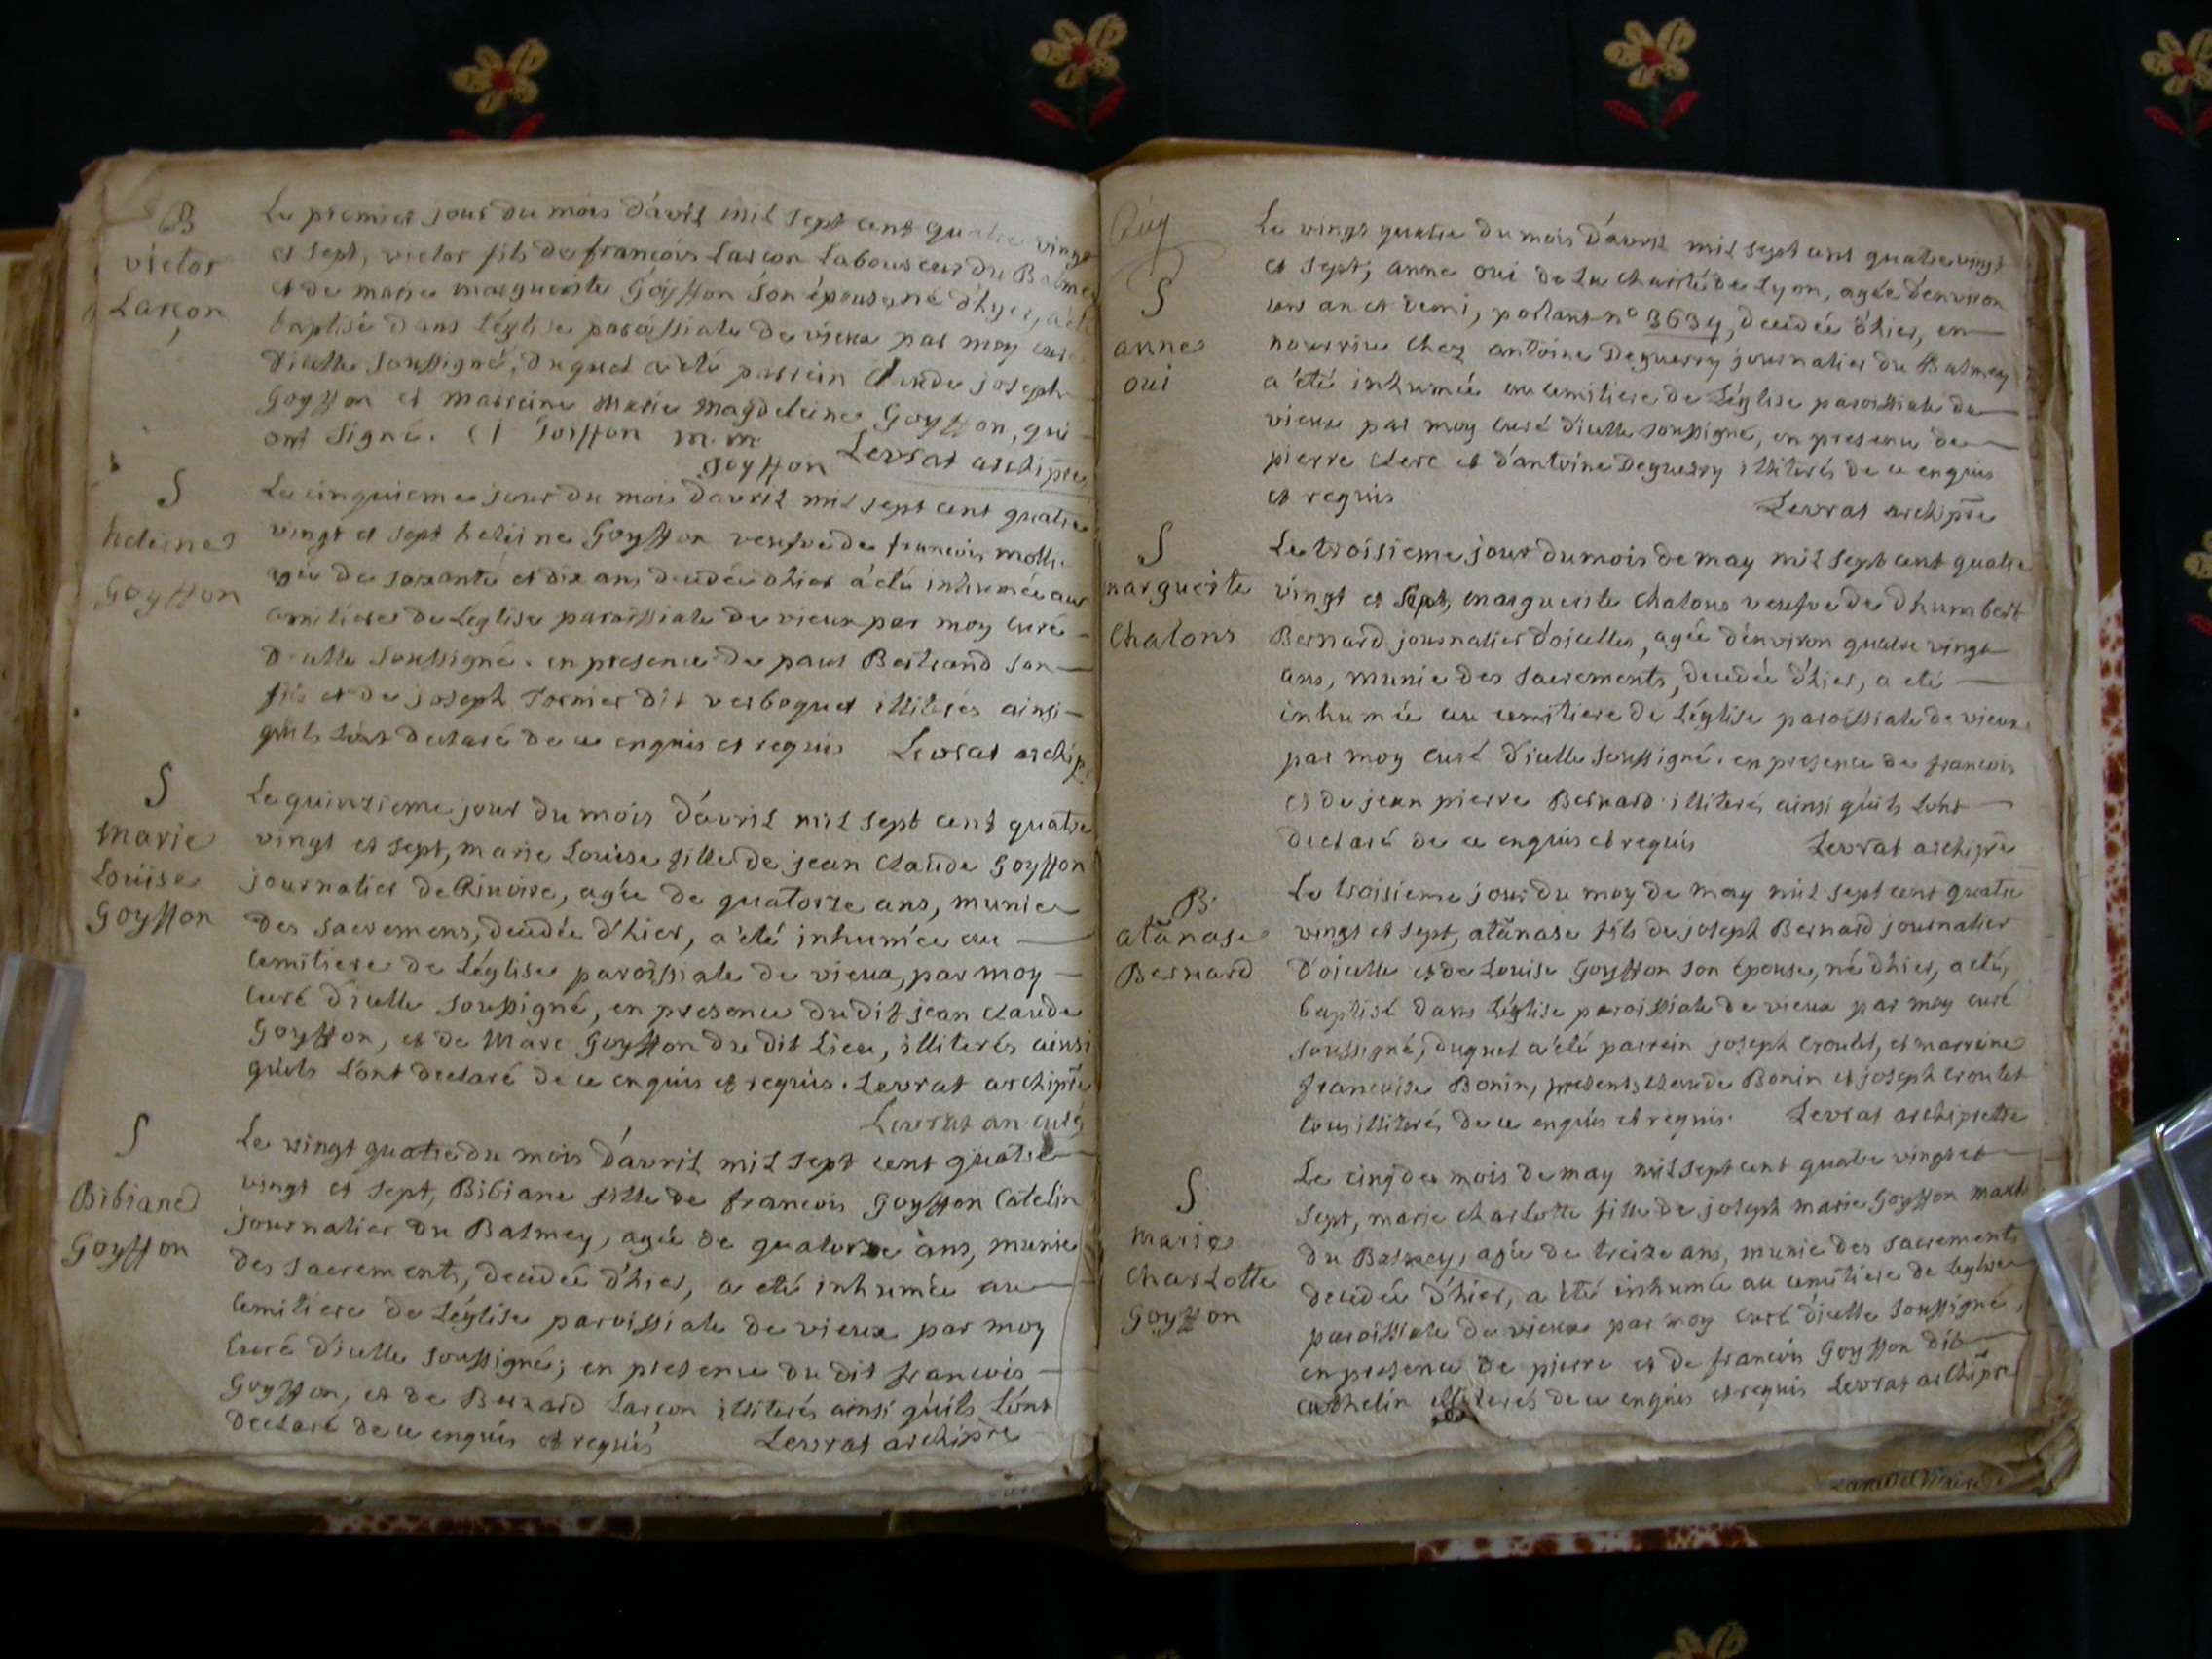 B
victor
Larçon
Le premier jour du mois d'avril mil sept cent quatre vingt
et sept, victor fils de françois Larçon Laboureur du Balmey
et de marie marguerite Goyffon son épouse, né d'hyer, a été
baptisé dans l'église paroissiale de vieux par moy curé
d'icelle soussigné, duquel a été parrein Claude joseph
Goyffon et marreine Marie Magdeleine Goyffon, qui
ont signé. Cl Goiffon m. m.
goyffon Levrat archiptre
S
heleine
Goyffon
Le cinquieme jour du mois d'avril mil sept cent quatre
vingt et sept heleine Goyffon veufve de francois
agée de soixante et dix ans decedée d'hier a été inhumée au
cemitiere de Léglise paroissiale de vieux par moy curé
d'icelle soussigné. en presence de paul Bertrand son
fils et de joseph Tornier dit verboquet illiterés ainsi
qu'ils l'ont declaré de ce enquis et requis Levrat archip
S
marie
Loüise
Goyffon
Le quinzieme jour du mois d'avril mil sept cent quatre
vingt et sept, marie Loüise fille de jean Claude Goyffon
journalier de Rivoire, agée de quatorze ans, munie
des sacremens, decedée d'hier, a été inhumée au
cemitiere de Léglise paroissiale de vieux, par moy
curé d'icelle soussigné, en presence du dit jean claude
Goyffon, et de Marc Goyffon du dit Lieu, illiterés ainsi
qu'ils l'ont declaré de ce enquis et requis. Levrat archiptre
Levrat an. curé
S
Bibiane
Goyffon
Le vingt quatre du mois d'avril mil sept cent quatre
vingt et sept, Bibiane fille de francois Goyffon Catelin
journalier du Balmey, agée de quatorze ans, munie
des sacrements, decedée d'hier, a eté inhumée au
cemitiere de Léglise paroissiale de vieux par moy
curé d'icelle soussigné; en presence du dit francois
Goyffon, et de Bernard Larçon illiterés ainsi qu'ils l'ont
declaré de ce enquis et requis Levrat archiptre
S
anne
oui
Le vingt quatre du mois d'avril mil sept cent quatre vingt
et sept; anne oui de La charité de Lyon, agée d'environ
un an et demi, portant n° 3634, decedée d'hier, en
nourrice chez antoine Deguerry journalier du Balmey
a été inhumée au cemitiere de Léglise paroissiale de
vieux par moy curé d'icelle soussigné, en presence de
pierre clerc et d'antoine Deguerry illiterés de ce enquis
et requis Levrat archiptre
S
marguerite
Chalons
Le troisieme jour du mois de may mil sept cent quatre
vingt et sept, marguerite Chalons veufve de d'humbert
Bernard journalier d'ojcelles, agée d'environ quatre vingt
ans, munie des sacrements, decedée d'hier, a eté
inhumée au cemitiere de Léglise paroissiale de vieux
par moy curé d'icelle soussigné. en presence de francois
et de jean pierre Bernard illiterés ainsi qu'ils l'ont
declaré de ce enquis et requis Levrat archiptre
B.
atanase
Bernard
Le troisieme jour du moy de may mil sept cent quatre
vingt et sept, atanase fils de joseph Bernard journalier
d'ojcelle et de Louise Goyffon son épouse, né d'hier, a eté,
baptisé dans Léglise paroissiale de vieux par moy curé
soussigné, duquel a été parrein joseph Croulet, et marreine
francoise Bonin, presents claude Bonin et joseph Croulet
tous illiterés de ce enquis et requis. Levrat archiprettre
S
marie
Charlotte
Goyffon
Le cinq du mois de may mil sept cent quatre vingt et
sept, marie charlotte fille de joseph marie Goyffon
du Balmey, agée de treize ans, munie des sacrements
decedée d'hier, a été inhumée au cemitiere de Leglise
paroissiale de vieux par moy curé d'icelle soussigné,
en presence de pierre et de francois Goyffon dit
cathelin illiterés de ce enquis et requis Levrat archiptre